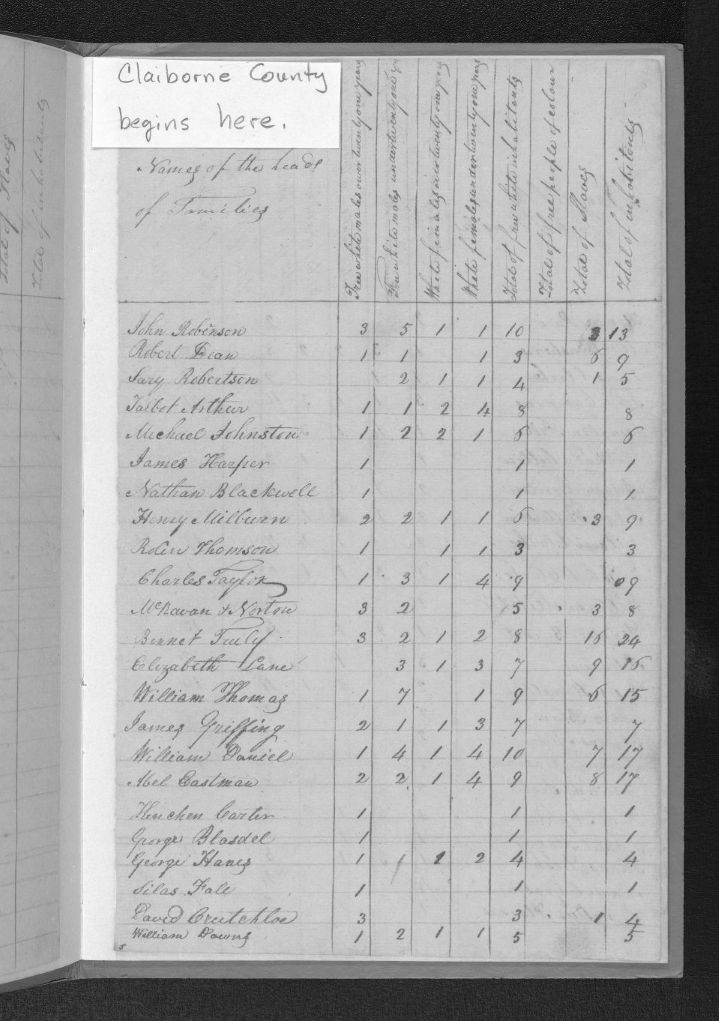 Claiborne County
begins here.
Names of the heads
of Families
Free white males over twenty one years
Free white males under twenty one y
White females over twenty one years
White females under twenty one years
Total of free white inhabitants
Total of free people of colour
Total of Slaves
Total of inhabitants
Total of Slaves
Total of inhabitants
John Robinson 3 5 1 1 10 3 13
Robert Dean 1 1 1 3 6 9
Sary Robertson 2 1 1 4 1 5
Talbot Arthur 1 1 2 4 8 8
Michael Johnston 1 2 2 1 6 6
James Harper 1 1 1
Nathan Blackwell 1 1 1
Henry Milburn 2 2 1 1 6 3 9
Thomson 1 1 1 3 3
Charles Taylor 1 3 1 4 9 9
& Norton 3 2 5 3 8
Bennet Truly 3 2 1 2 8 16 24
Elizabeth Lane 3 1 3 7 9 16
William Thomas 1 7 1 9 6 15
James Griffing 2 1 1 3 7 7
William Daniel 1 4 1 4 10 7 17
Abel Eastman 2 2 1 4 9 8 17
Hinchen Carter 1 1 1
George Blasdel 1 1 1
George Hanes 1 1 2 4 4
Silas Fale 1 1 1
David Crutchloe 3 3 1 4
William Downs 1 2 1 1 5 5